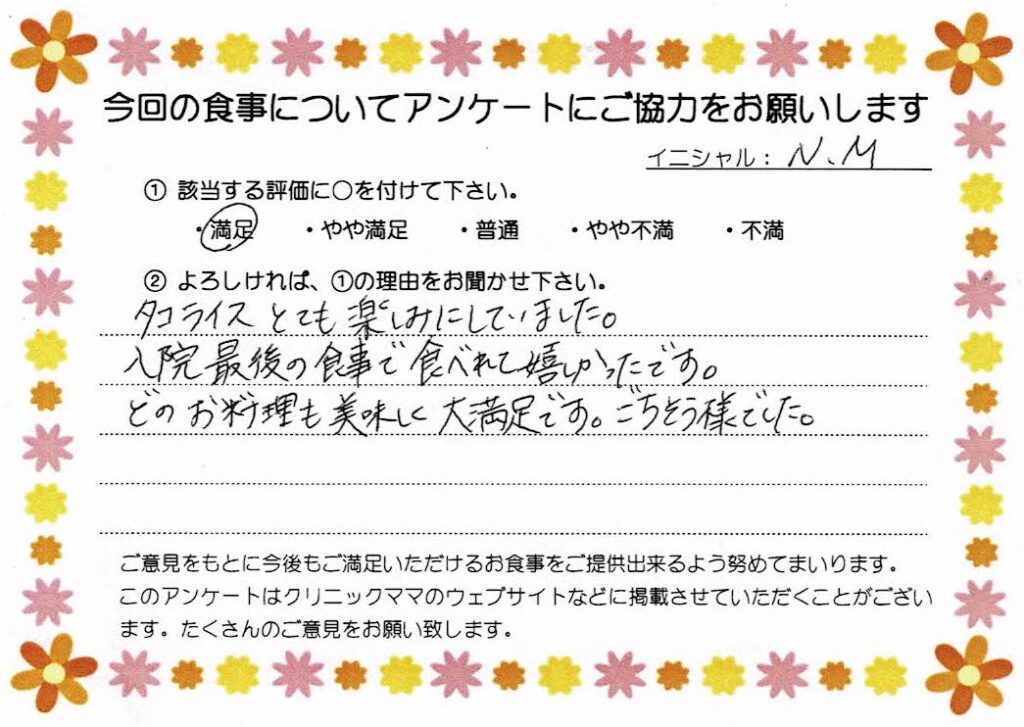 今回の食事についてアンケートにご協力をお願いします
イニシャル： N.M
① 該当する評価に○を付けて下さい。
・満足 ・やや満足 ・普通 ・やや不満 ・不満
② よろしければ、①の理由をお聞かせ下さい。
タコライスとても楽しみにしていました。
入院最後の食事で食べれて嬉しかったです。
どのお料理も美味しく大満足です。ごちそう様でした。
ご意見をもとに今後もご満足いただけるお食事をご提供出来るよう努めてまいります。
このアンケートはクリニックママのウェブサイトなどに掲載させていただくことがござい
ます。たくさんのご意見をお願い致します。